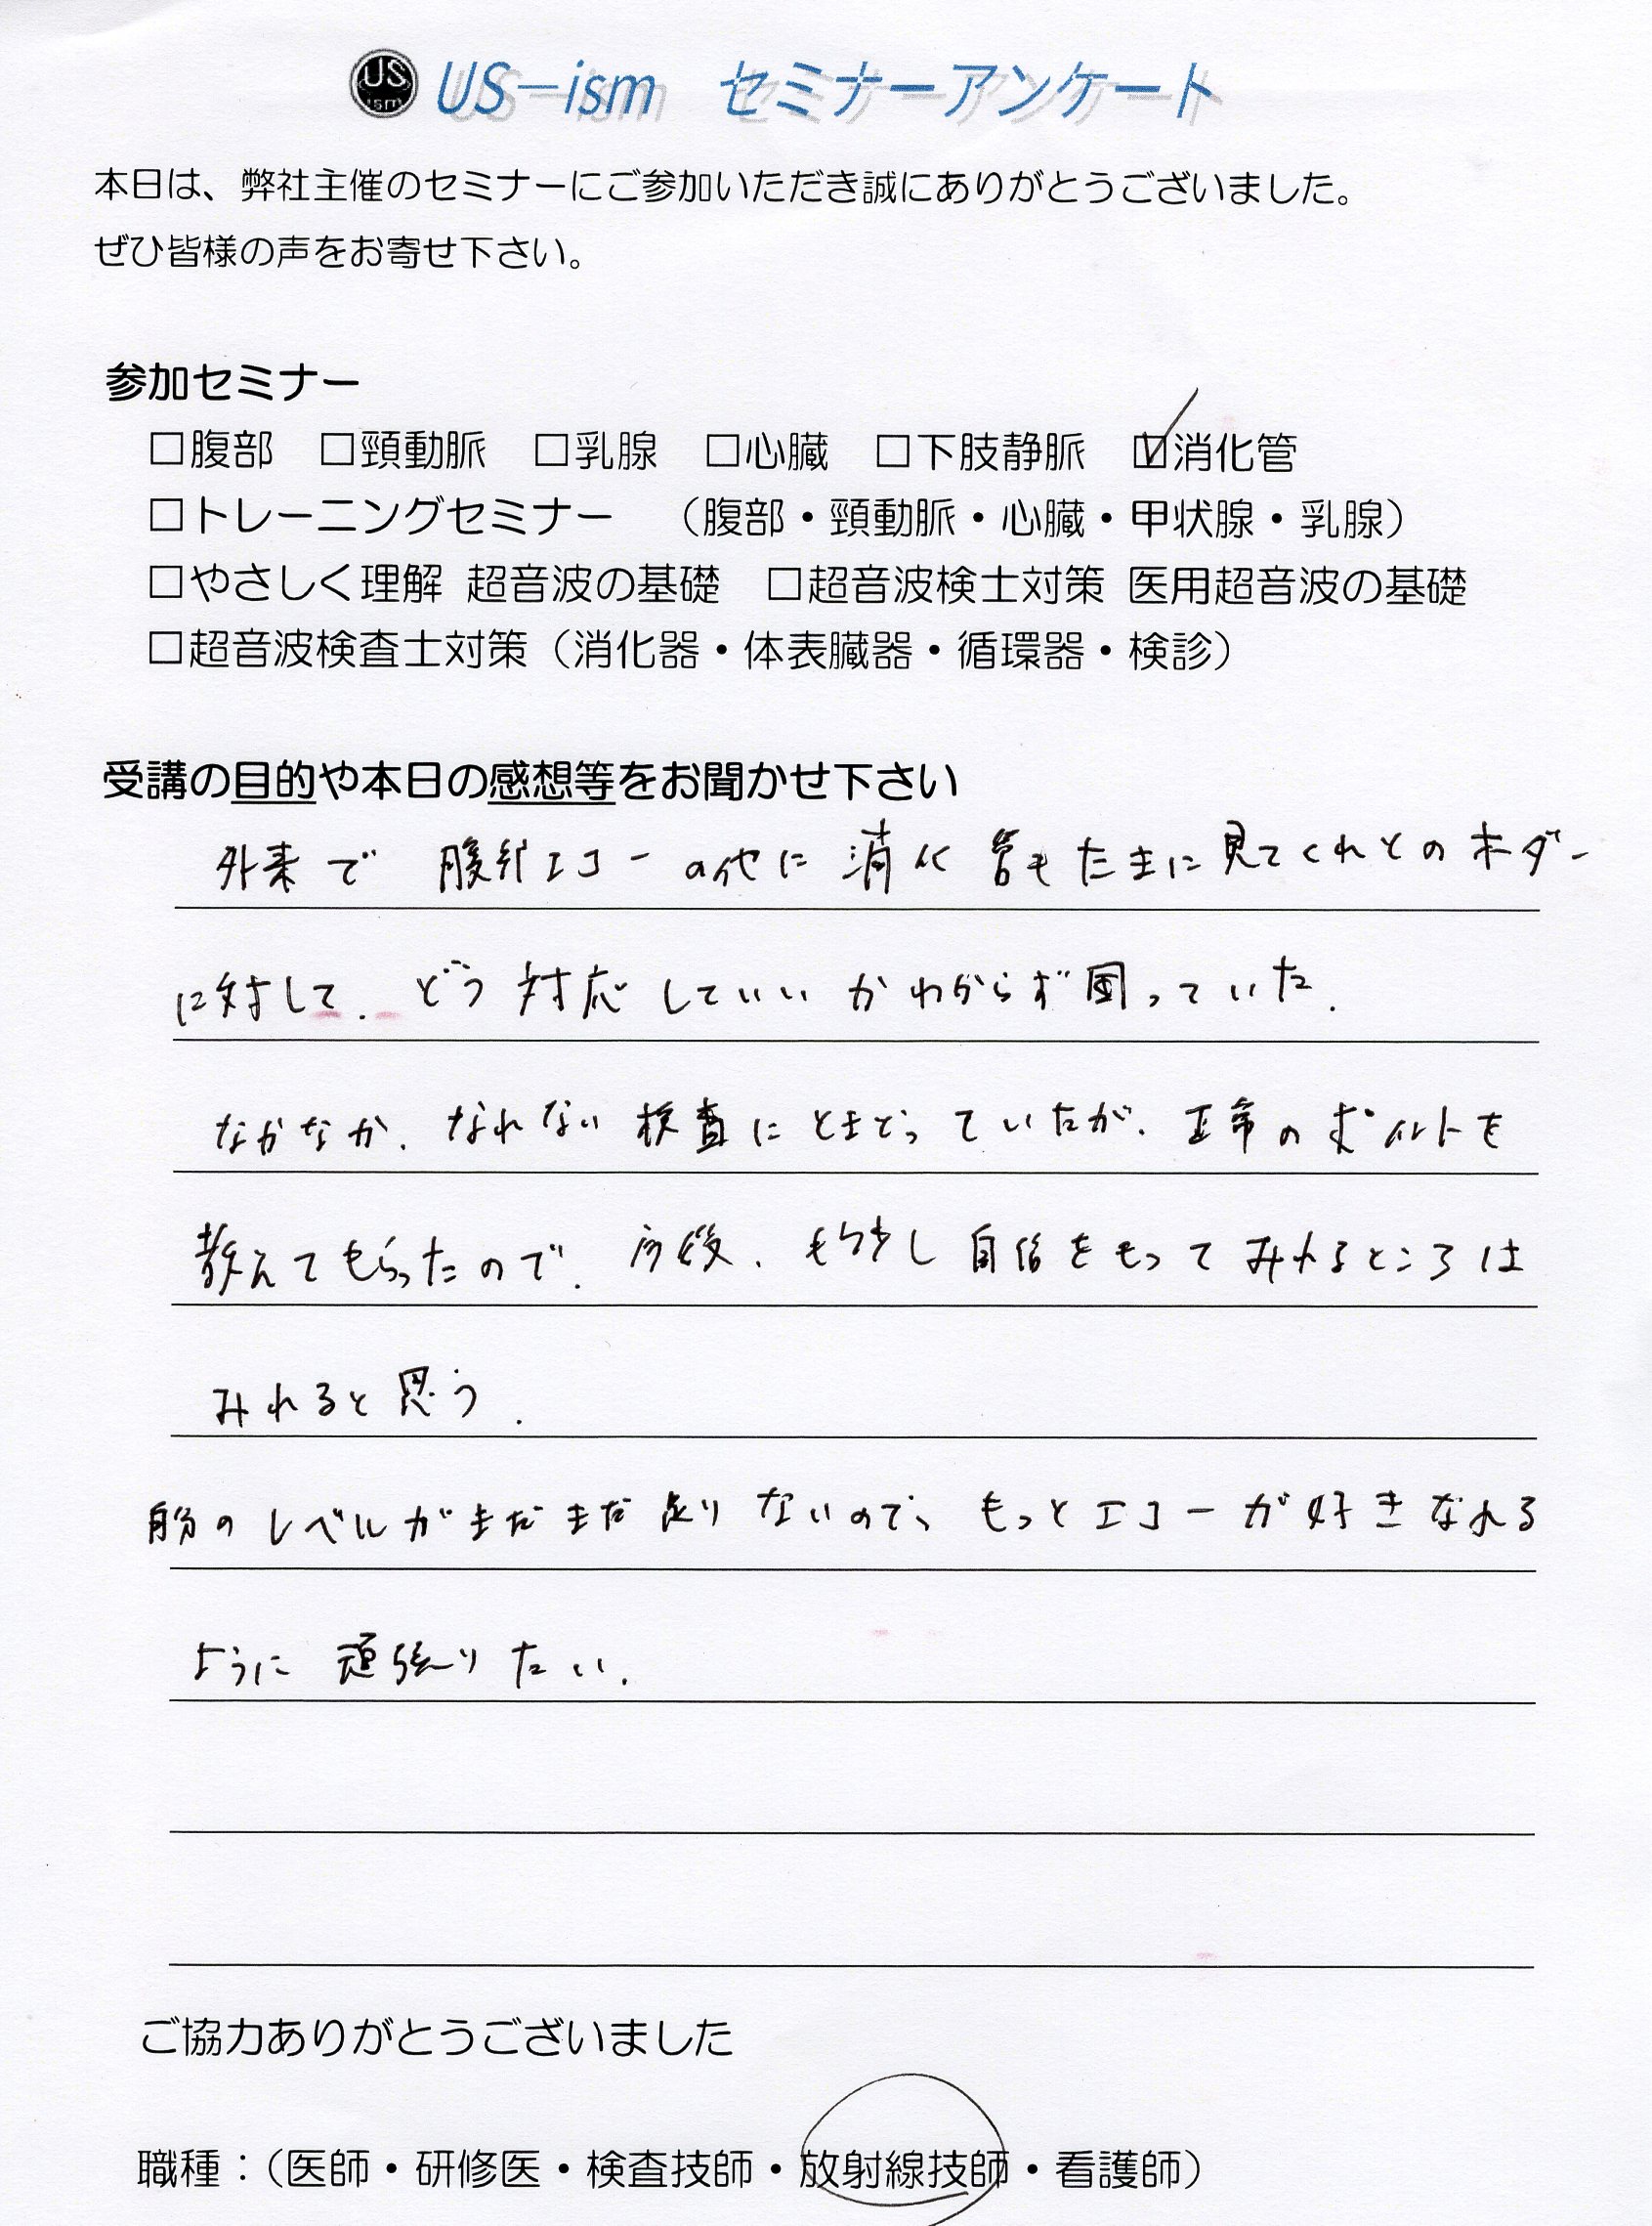 US ism
US-ism セミナーアンケート
本日は、弊社主催のセミナーにご参加いただき誠にありがとうございました。
ぜひ皆様の声をお寄せ下さい。
参加セミナー
□腹部 □頸動脈 □乳腺 □心臓 □下肢静脈 ☑消化管
□トレーニングセミナー （腹部・頸動脈・心臓・甲状腺・乳腺）
□やさしく理解 超音波の基礎 □超音波検士対策 医用超音波の基礎
□超音波検査士対策（消化器・体表臓器・循環器・検診）
受講の目的や本日の感想等をお聞かせ下さい
外来で 腹部エコーの他に 消化管もたまに見てくれとのオーダー
に対して. どう対応していいかわからず困っていた.
なかなか. なれない検査にとまどっていたが. 正常のポイントを
教えてもらったので. 今後. もう少し自信をもってみれるところは
みれると思う.
自分のレベルがまだまだ足りないので、もっとエコーが好きなれる
ように 頑張りたい.
ご協力ありがとうございました
職種：（医師・研修医・検査技師・放射線技師・看護師）